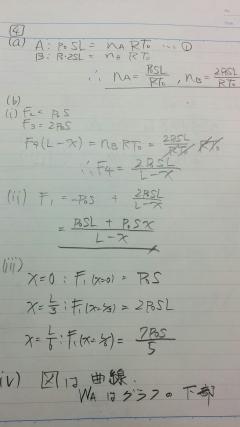 [4]
(a) A: P₀SL = n_A RT₀ … ①
B: P₀·2SL = n_B RT₀
∴ n_A = P₀SL/RT₀ , n_B = 2P₀SL/RT₀
(b)
(i) F₂ = P₀S
F₃ = 2P₀S
F₄(L-x) = n_B RT₀ = 2P₀SL/RT₀ RT₀
∴ F₄ = 2P₀SL/L-x
(ii) F₁ = -P₀S + 2P₀SL/L-x
= P₀SL + P₀Sx/L-x
(iii)
x=0 : F₁(x=0) = P₀S
x=L/3 : F₁(x=L/3) = 2P₀SL
x=L/6 : F₁(x=L/6) = 7P₀S/5
(iv) 図は曲線.
W_Aはグラフの下部